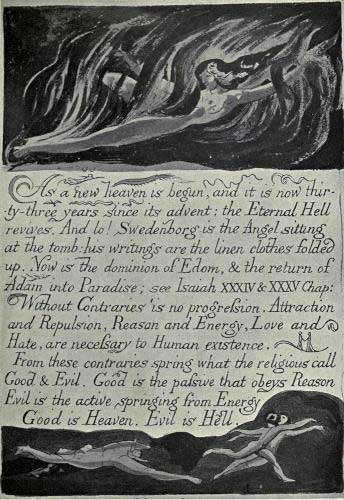 As a new heaven is begun, and it is now thir-
ty-three years since its advent: the Eternal Hell
revives. And lo! Swedenborg is the Angel sitting
at the tomb: his writings are the linen clothes folded
up. Now is the dominion of Edom, & the return of
Adam into Paradise; see Isaiah XXXIV & XXXV Chap:
Without Contraries is no progression. Attraction
and Repulsion, Reason and Energy, Love and
Hate, are necessary to Human existence.
From these contraries spring what the religious call
Good & Evil. Good is the passive that obeys Reason
Evil is the active springing from Energy
Good is Heaven. Evil is Hell.